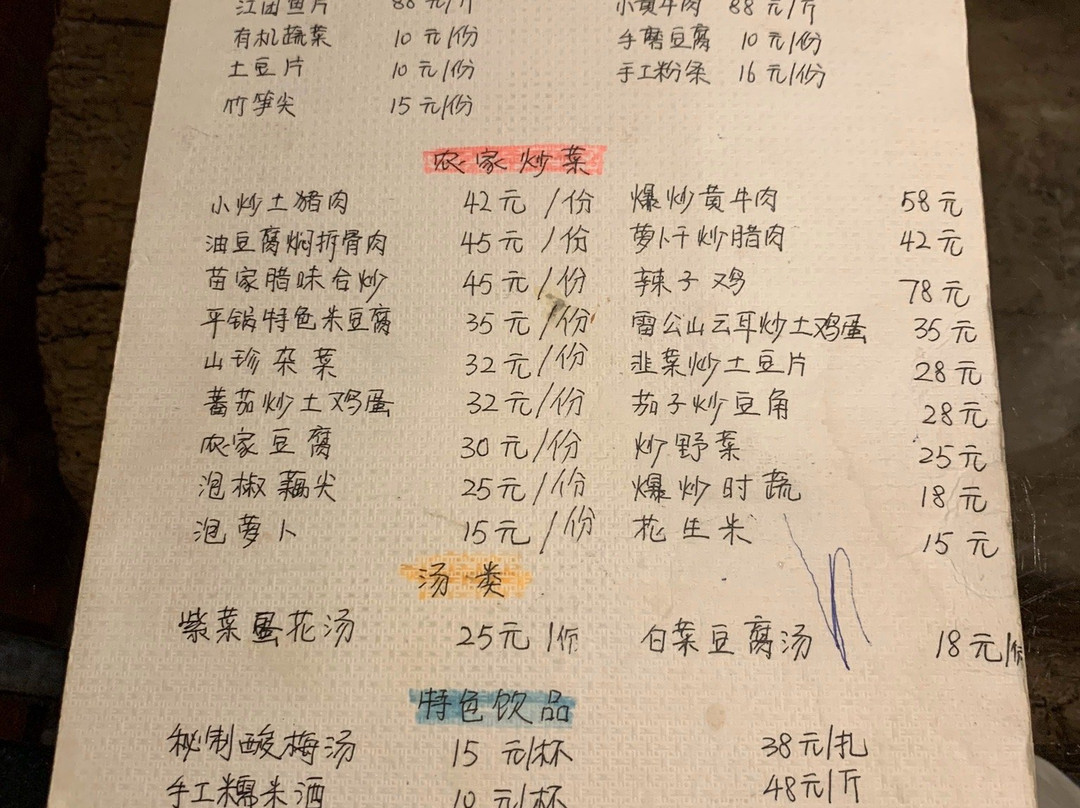 江团鱼片 88元/斤 小黄牛肉 88元/斤
有机蔬菜 10元/份 手磨豆腐 10元/份
土豆片 10元/份 手工粉条 16元/份
竹笋尖 15元/份
农家炒菜
小炒土猪肉 42元/份 爆炒黄牛肉 58元
油豆腐焖折骨肉 45元/份 萝卜干炒腊肉 42元
苗家腊味合炒 45元/份 辣子鸡 78元
平锅特色米豆腐 35元/份 雷公山云耳炒土鸡蛋 35元
山珍杂菜 32元/份 韭菜炒土豆片 28元
蕃茄炒土鸡蛋 32元/份 茄子炒豆角 28元
农家豆腐 30元/份 炒野菜 25元
泡椒藕尖 25元/份 爆炒时蔬 18元
泡萝卜 15元/份 花生米 15元
汤类
紫菜蛋花汤 25元/份 白菜豆腐汤 18元/份
特色饮品
秘制酸梅汤 15元/杯 38元/扎
手工糯米酒 10元/杯 48元/斤